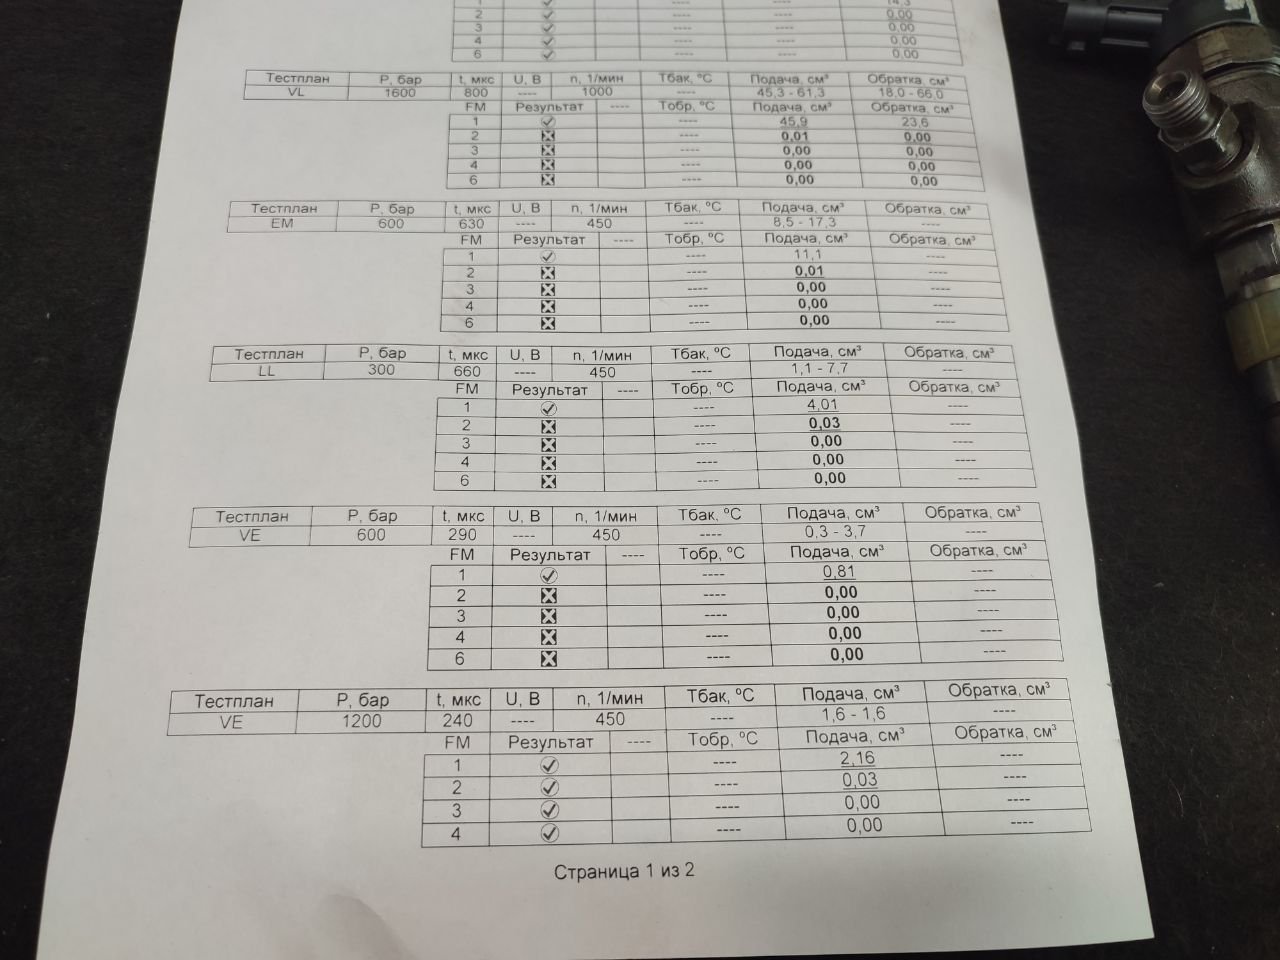 1 ---- ---- 14,3
2 ---- ---- 0,00
3 ---- ---- 0,00
4 ---- ---- 0,00
6 ---- ---- 0,00
Тестплан P, бар t, мкс U, В n, 1/мин Тбак, ºС Подача, см³ Обратка, см³
VL 1600 800 ---- 1000 ---- 45,3 - 61,3 18,0 - 66,0
FM Результат ---- Тобр, ºС Подача, см³ Обратка, см³
1 ---- 45,9 23,6
2 ---- 0,01 0,00
3 ---- 0,00 0,00
4 ---- 0,00 0,00
6 ---- 0,00 0,00
Тестплан P, бар t, мкс U, В n, 1/мин Тбак, ºС Подача, см³ Обратка, см³
EM 600 630 ---- 450 ---- 8,5 - 17,3 ----
FM Результат ---- Тобр, ºС Подача, см³ Обратка, см³
1 ---- 11,1 ----
2 ---- 0,01 ----
3 ---- 0,00 ----
4 ---- 0,00 ----
6 ---- 0,00 ----
Тестплан P, бар t, мкс U, В n, 1/мин Тбак, ºС Подача, см³ Обратка, см³
LL 300 660 ---- 450 ---- 1,1 - 7,7 ----
FM Результат ---- Тобр, ºС Подача, см³ Обратка, см³
1 ---- 4,01 ----
2 ---- 0,03 ----
3 ---- 0,00 ----
4 ---- 0,00 ----
6 ---- 0,00 ----
Тестплан P, бар t, мкс U, В n, 1/мин Тбак, ºС Подача, см³ Обратка, см³
VE 600 290 ---- 450 ---- 0,3 - 3,7 ----
FM Результат ---- Тобр, ºС Подача, см³ Обратка, см³
1 ---- 0,81 ----
2 ---- 0,00 ----
3 ---- 0,00 ----
4 ---- 0,00 ----
6 ---- 0,00 ----
Тестплан P, бар t, мкс U, В n, 1/мин Тбак, ºС Подача, см³ Обратка, см³
VE 1200 240 ---- 450 ---- 1,6 - 1,6 ----
FM Результат ---- Тобр, ºС Подача, см³ Обратка, см³
1 ---- 2,16 ----
2 ---- 0,03 ----
3 ---- 0,00 ----
4 ---- 0,00 ----
Страница 1 из 2